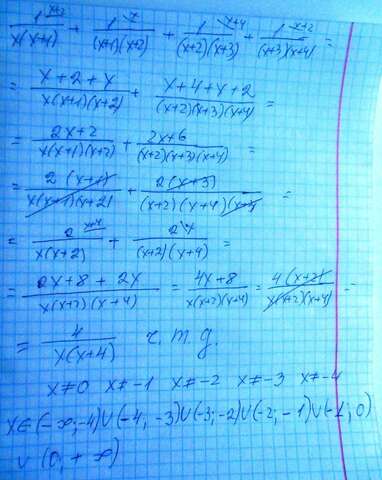 1/(x(x+1)) + 1/((x+1)(x+2)) + 1/((x+2)(x+3)) + 1/((x+3)(x+4)) =
= (x+2+x)/(x(x+1)(x+2)) + (x+4+x+2)/((x+2)(x+3)(x+4)) =
= (2x+2)/(x(x+1)(x+2)) + (2x+6)/((x+2)(x+3)(x+4)) =
= 2(x+1)/(x(x+1)(x+2)) + 2(x+3)/((x+2)(x+4)(x+3)) =
= 2/(x(x+2)) + 2/((x+2)(x+4)) =
= (2x+8+2x)/(x(x+2)(x+4)) = (4x+8)/(x(x+2)(x+4)) = 4(x+2)/(x(x+2)(x+4)) =
= 4/(x(x+4)) ч.т.д.
x≠0 x≠-1 x≠-2 x≠-3 x≠-4
x∈(-∞;-4)∪(-4;-3)∪(-3;-2)∪(-2;-1)∪(-1;0)
∪(0;+∞)